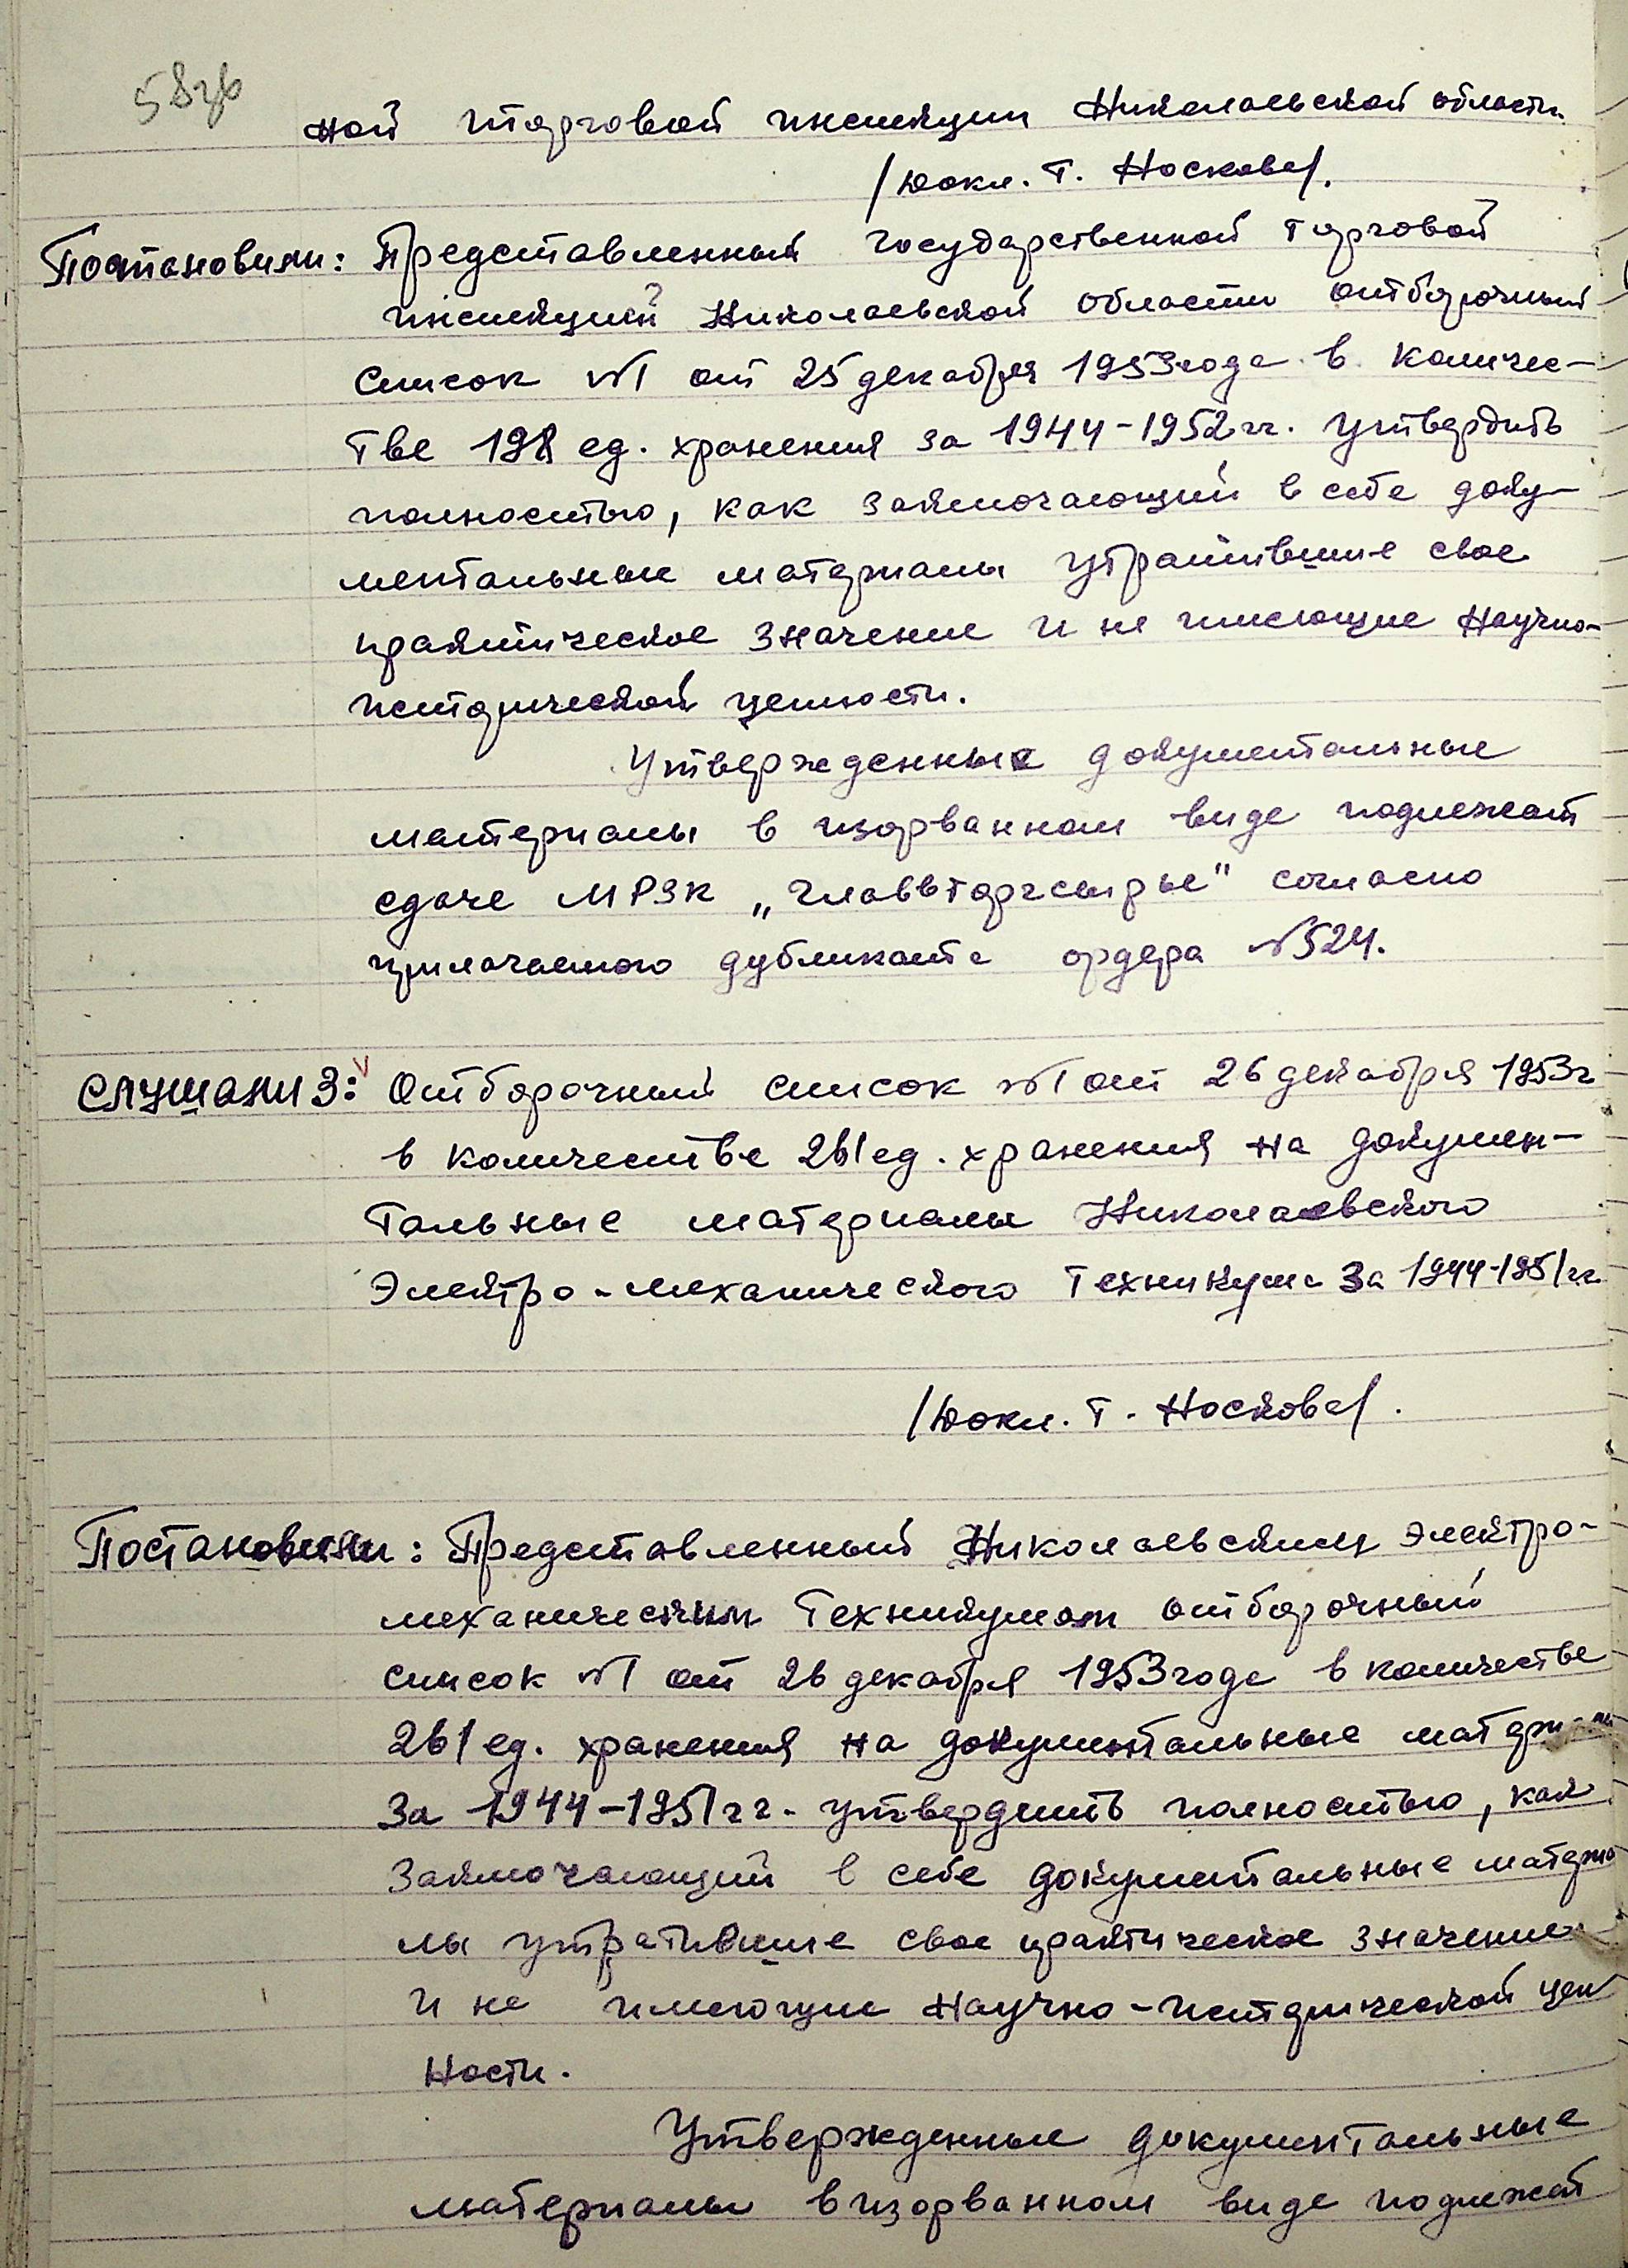 58об
ной торговой инспекции Николаевской области.
/докл. т. Носкова/.
Постановили: Представленный государственной торговой
инспекцией Николаевской области отборочный
список №1 от 25 декабря 1953 года в количес-
тве 198 ед. хранения за 1944-1952 гг. утвердить
полностью, как заключающий в себе доку-
ментальные материалы утратившие свое
практическое значение и не имеющие научно-
исторической ценности.
Утвержденные документальные
материалы в изорванном виде подлежат
сдаче МРЗК „Главвторсырье" согласно
прилагаемого дубликата ордера №524.
Слушали 3: Отборочный список №1 от 26 декабря 1953 г
в количестве 261 ед. хранения на докумен-
тальные материалы Николаевского
Электро-механического Техникума за 1944-1951 гг.
/докл. т. Носкова/.
Постановили: Представленный Николаевским электро-
механическим Техникумом отборочный
список №1 от 26 декабря 1953 года в количестве
261 ед. хранения на документальные матери-лы
за 1944-1951 гг. утвердить полностью, как
заключающий в себе документальные материа
лы утратившие свое практическое значение
и не имеющие научно-исторической цен
ности.
Утвержденные документальные
материалы в изорванном виде подлежат